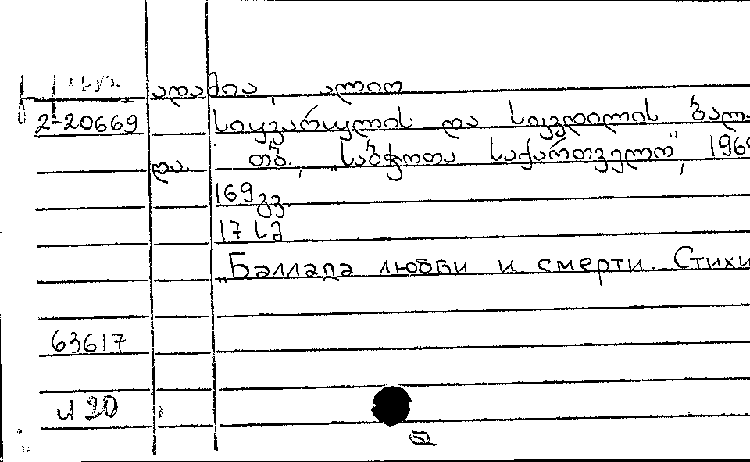 ადამია, ალიო
2-20669 სიყვარულის და სიკვდილის ბალა
და. თბ., „საბჭოთა საქართველო", 1969
169 გვ.
17 სმ
„Баллада любви и смерти. Стихи
63617